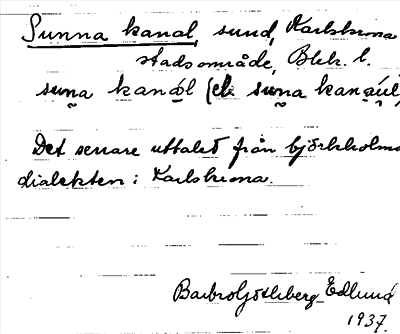 Sunna kanal, sund, Karlskrona
stadsområde, Blek. l.
suna kanál (el. suna kanaúl,
Det senare uttalet från björkholms
dialekten i Karlskrona.
Barbro Götlberg Edlund
1937.